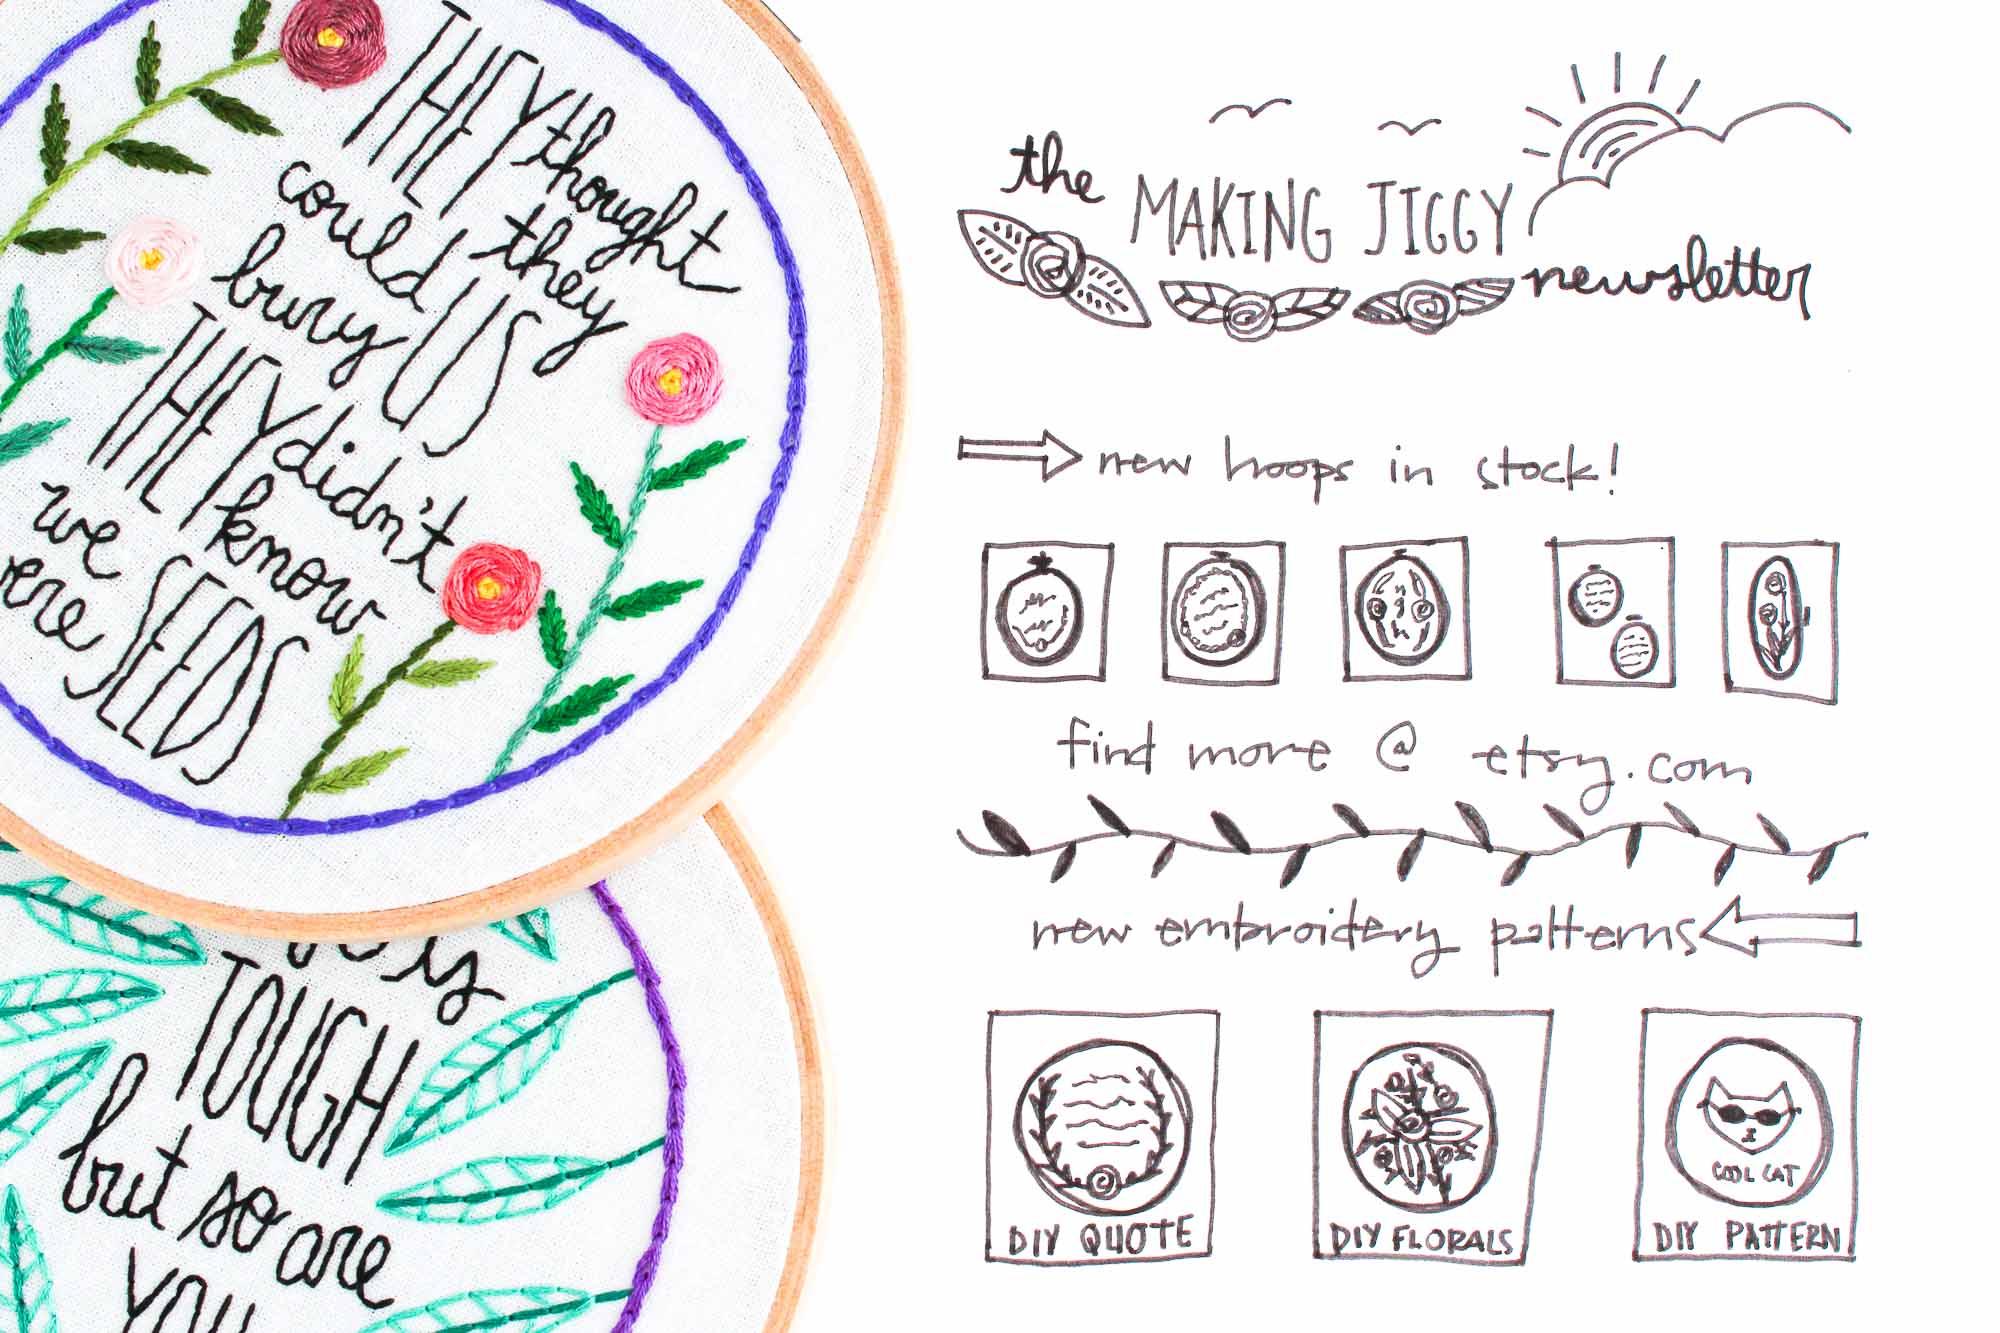 THEY thought
could they
bury US
THEY didn't
we know
were SEEDS
is
TOUGH
but so are
YOU
the MAKING JIGGY newsletter
new hoops in stock!
find more @ etsy.com
new embroidery patterns
COOL CAT
DIY QUOTE
DIY FLORALS
DIY PATTERN